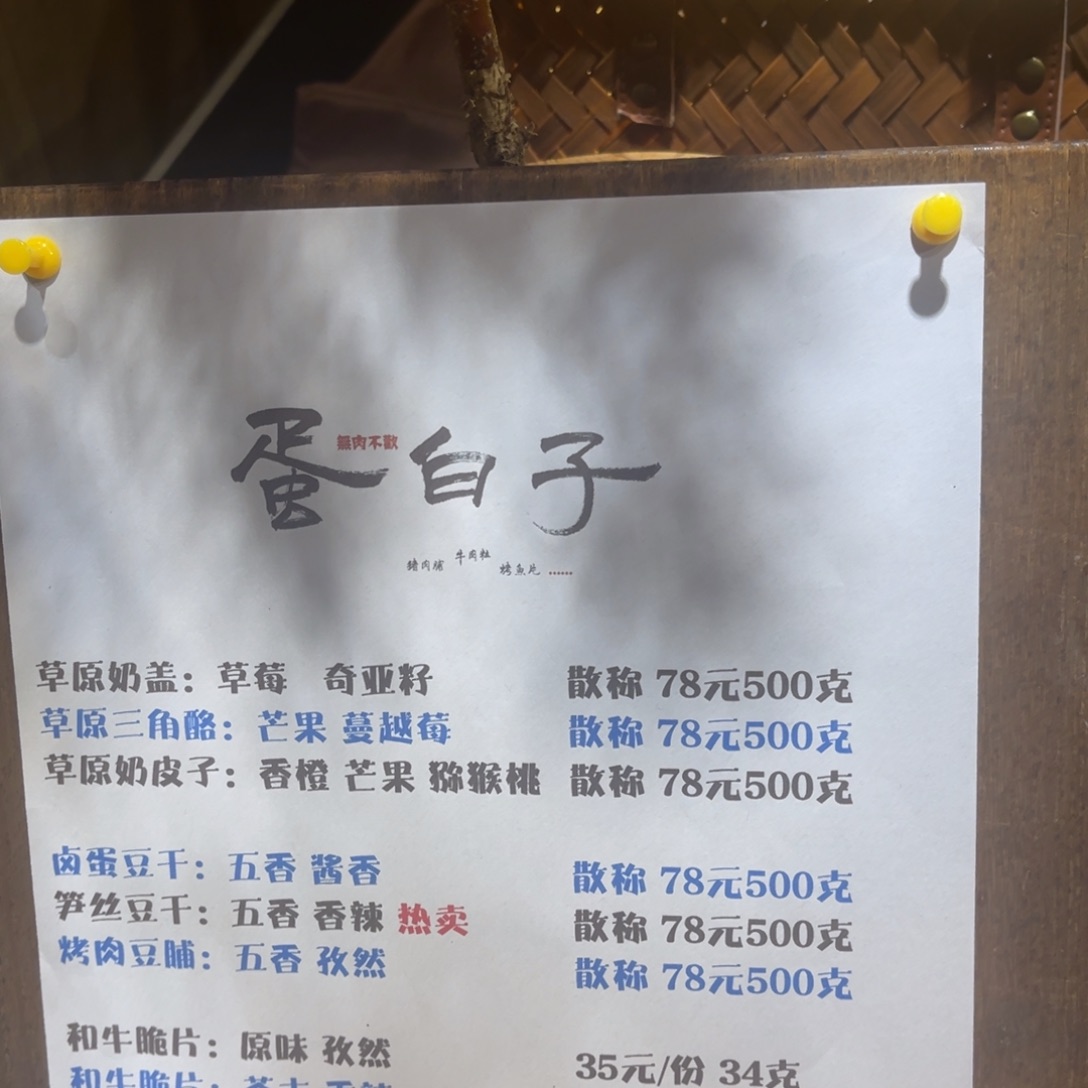 蛋白子
無肉不歡
猪肉脯 牛肉粒 烤魚片 ······
草原奶盖：草莓 奇亚籽 散称 78元500克
草原三角酪：芒果 蔓越莓 散称 78元500克
草原奶皮子：香橙 芒果 猕猴桃 散称 78元500克
卤蛋豆干：五香 酱香 散称 78元500克
笋丝豆干：五香 香辣 热卖 散称 78元500克
烤肉豆脯：五香 孜然 散称 78元500克
和牛脆片：原味 孜然 35元/份 34克
和牛脆片：